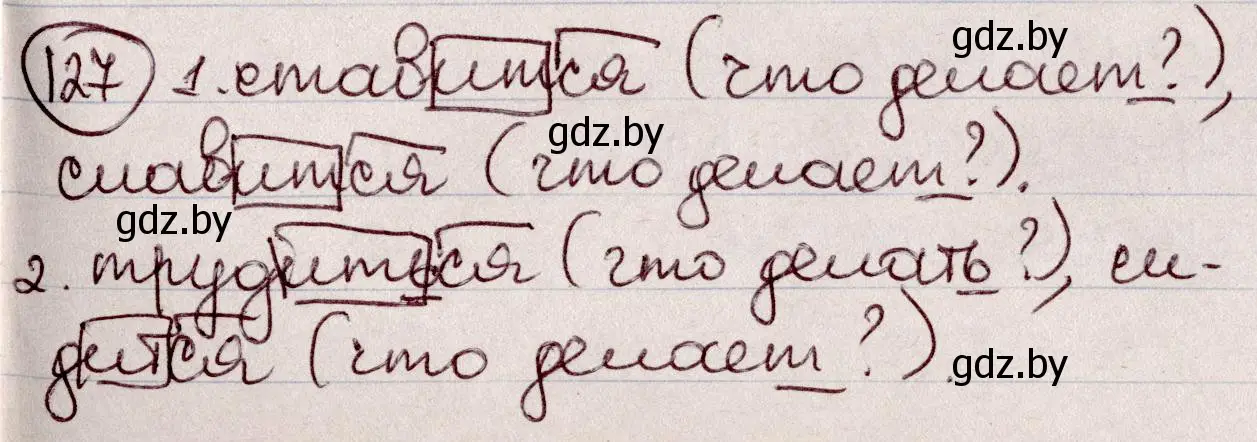 127 1. ставится (что делает?),
gdz.by
славится (что делает?).
gdz.by
gdz.by
2. трудиться (что делать?), си-
дится (что делает?).
gdz.by